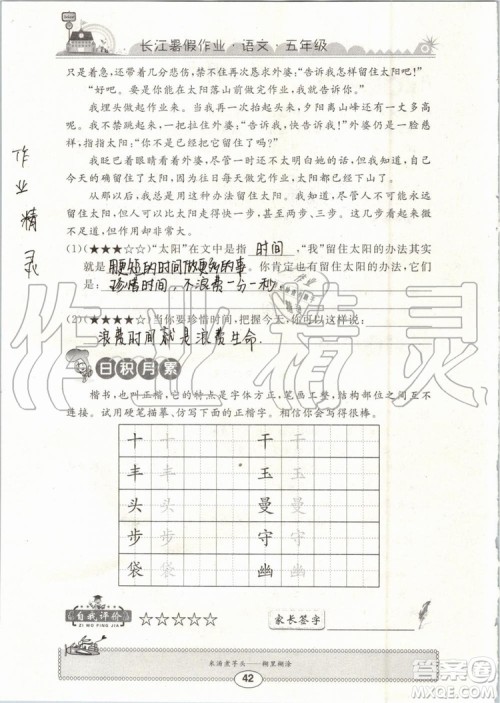 长江暑假作业·语文·五年级
只是着急，还带着几分悲伤，禁不住再次恳求外婆：“告诉我怎样留住太阳吧！”
“好吧。要是你能在太阳落山前做完作业，我就告诉你。”
我埋头做起作业来。当我再一次抬起头来，夕阳离山峰还有一丈多高
呢。我不禁跳起来，一把拉住外婆：“告诉我，快告诉我！”外婆仍是一脸慈
祥，指指太阳：“你不是已经把它留住了吗？”
我眨巴着眼睛看着外婆。尽管一时还不太明白她的话，但我知道，自己
今天的确留住了太阳，因为往日每天做完作业，太阳早落山了。
从那以后，我总是用这种办法留住太阳。我知道，尽管人不可能走得比
太阳快，但人可以比太阳走得快一步，甚至快几步。有时候，虽然只快一
步，但作用却非常大。
(1)(★★★☆☆)“太阳”在文中是指 时间 ，“我”留住太阳的办法其实
就是 用更短的时间做更多的事 。你肯定也有留住太阳的办法，它们
是： 珍惜时间，不浪费一分一秒 。
(2)(★★★★☆)当你要珍惜时间，把握今天，你可以这样说：
浪费时间就是浪费生命.
作业精灵
日积月累
楷书，也叫正楷，它的特点是字体方正，笔画工整，结构部位之间互不
连接。试用硬笔描摹、仿写下面的正楷字。相信你会写得很棒。
十 十 干 干
丰 丰 玉 玉
头 头 曼 曼
步 步 守 守
袋 袋 幽 幽
自我评价
ZI WO PING JIA
☆☆☆☆☆
家长签字
米汤煮芋头——糊里糊涂
42
作业精灵
答案圈
MXQE.COM